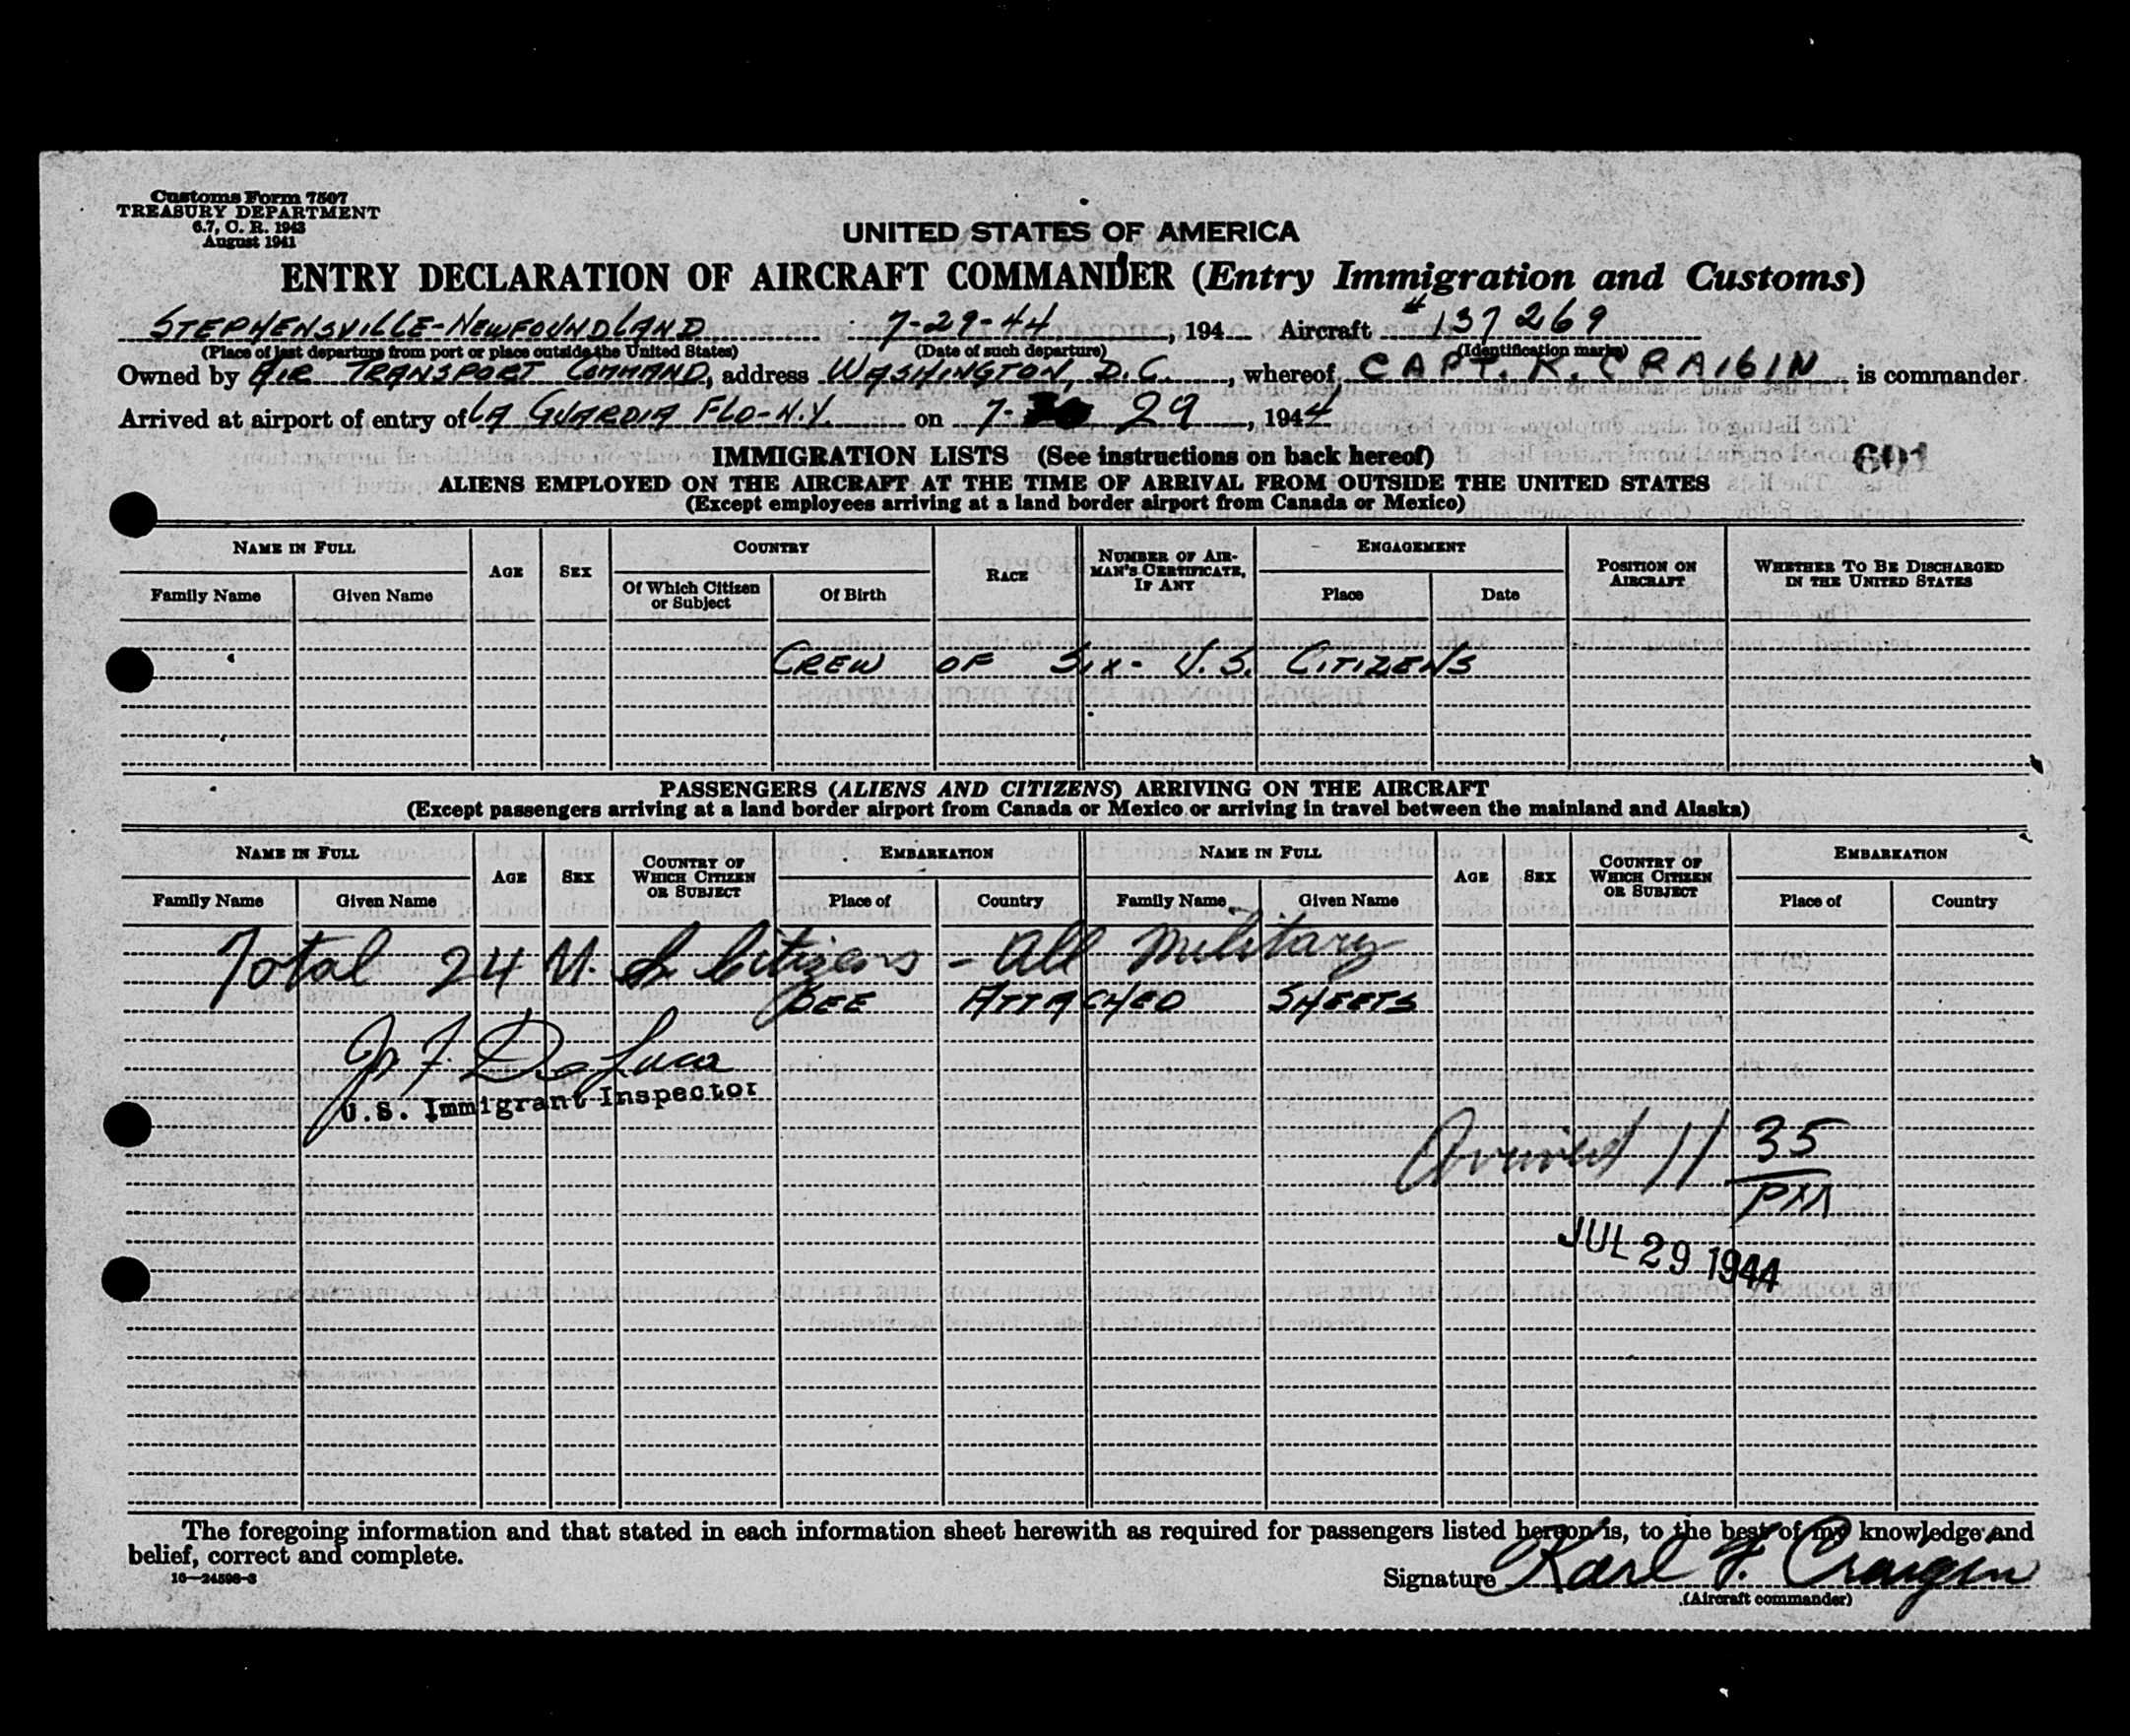 Customs Form 7507
TREASURY DEPARTMENT
6.7, C. R. 1943
August 1941
UNITED STATES OF AMERICA
ENTRY DECLARATION OF AIRCRAFT COMMANDER (Entry Immigration and Customs)
STEPHENSVILLE-NEWFOUNDLAND 7-29-44, 194 Aircraft #137269
(Place of last departure from port or place outside the United States) (Date of such departure) (Identification marks)
Owned by AIR TRANSPORT COMMAND, address WASHINGTON, D.C., whereof CAPT. K. CRAIGIN is commander.
Arrived at airport of entry of LA GUARDIA FLD-N.Y. on 7- 29, 1944
601
IMMIGRATION LISTS (See instructions on back hereof)
ALIENS EMPLOYED ON THE AIRCRAFT AT THE TIME OF ARRIVAL FROM OUTSIDE THE UNITED STATES
(Except employees arriving at a land border airport from Canada or Mexico)
NAME IN FULL AGE SEX COUNTRY RACE NUMBER OF AIRMAN'S CERTIFICATE, IF ANY ENGAGEMENT POSITION ON AIRCRAFT WHETHER TO BE DISCHARGED IN THE UNITED STATES
Family Name Given Name Of Which Citizen or Subject Of Birth Place Date
CREW OF SIX- U.S. CITIZENS
PASSENGERS (ALIENS AND CITIZENS) ARRIVING ON THE AIRCRAFT
(Except passengers arriving at a land border airport from Canada or Mexico or arriving in travel between the mainland and Alaska)
NAME IN FULL AGE SEX COUNTRY OF WHICH CITIZEN OR SUBJECT EMBARKATION NAME IN FULL AGE SEX COUNTRY OF WHICH CITIZEN OR SUBJECT EMBARKATION
Family Name Given Name Place of Country Family Name Given Name Place of Country
Total 24 Citizens - All Military
SEE ATTACHED SHEETS
De Luca
U.S. Immigrant Inspector
Arrived 11 35
PM
JUL 29 1944
The foregoing information and that stated in each information sheet herewith as required for passengers listed hereon is, to the best of my knowledge and
belief, correct and complete.
16—24598-3
Signature Karl F. Craigin
(Aircraft commander)